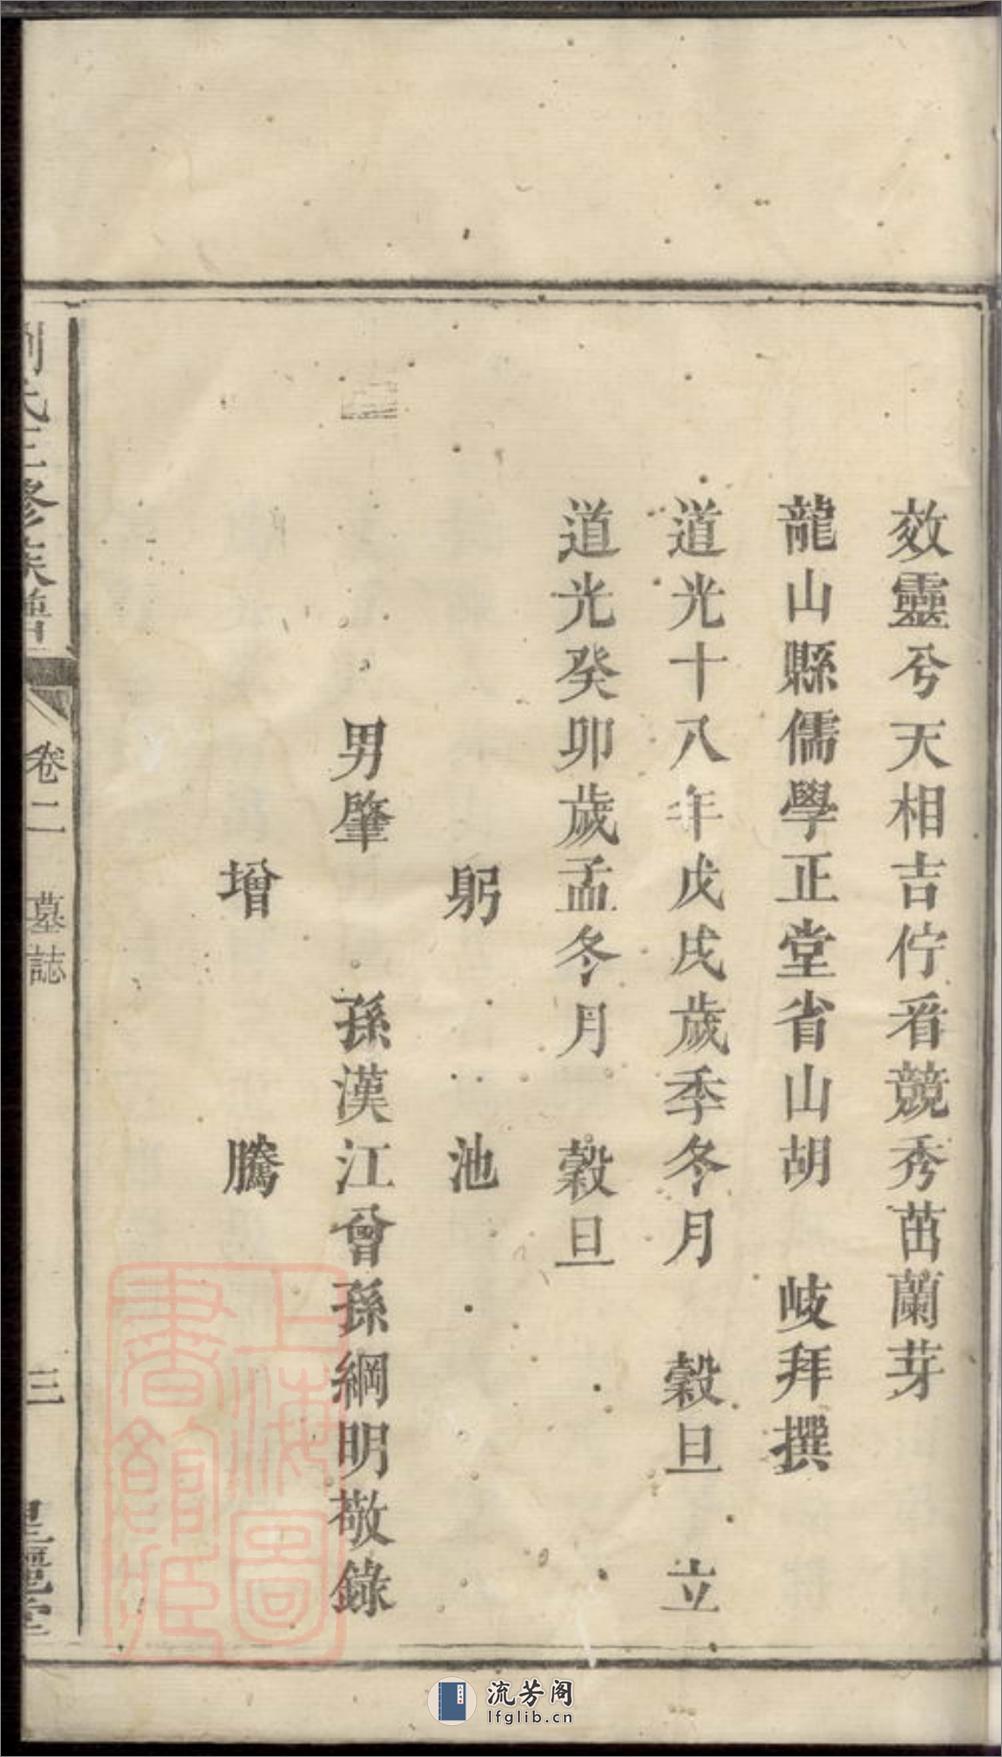 效靈兮天相吉佇看競秀茁蘭芽
龍山縣儒學正堂省山胡　岐拜撰
道光十八年戊戌歲季冬月　穀旦　立
道光癸卯歲孟冬月　穀旦
躬　池
男肇　孫漢江曾孫綱明敬錄
增　騰
劉氏三修族譜　卷二　墓誌　三
上海圖書館藏
流芳阁
lfglib.cn